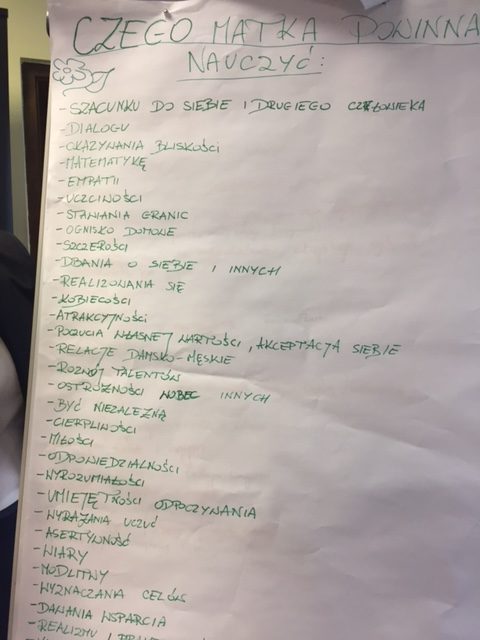 CZEGO MATKA POWINNA
NAUCZYĆ:
- SZACUNKU DO SIEBIE I DRUGIEGO CZŁOWIEKA
- DIALOGU
- OKAZYWANIA BLISKOŚCI
- MATEMATYKĘ
- EMPATII
- UCZCIWOŚCI
- STAWIANIA GRANIC
- OGNISKO DOMOWE
- SZCZEROŚCI
- DBANIA O SIEBIE I INNYCH
- REALIZOWANIA SIĘ
- KOBIECOŚCI
- ATRAKCYJNOŚCI
- POCZUCIA WŁASNEJ WARTOŚCI, AKCEPTACJA SIEBIE
- RELACJE DAMSKO-MĘSKIE
- ROZWÓJ TALENTÓW
- OSTROŻNOŚCI WOBEC INNYCH
- BYĆ NIEZALEŻNĄ
- CIERPLIWOŚCI
- MIŁOŚCI
- ODPOWIEDZIALNOŚCI
- WYROZUMIAŁOŚCI
- UMIEJĘTNOŚCI ODPOCZYWANIA
- WYRAŻANIA UCZUĆ
- ASERTYWNOŚĆ
- WIARY
- MODLITWY
- WYZNACZANIA CELÓW
- DAWANIA WSPARCIA
- REALIZMU I